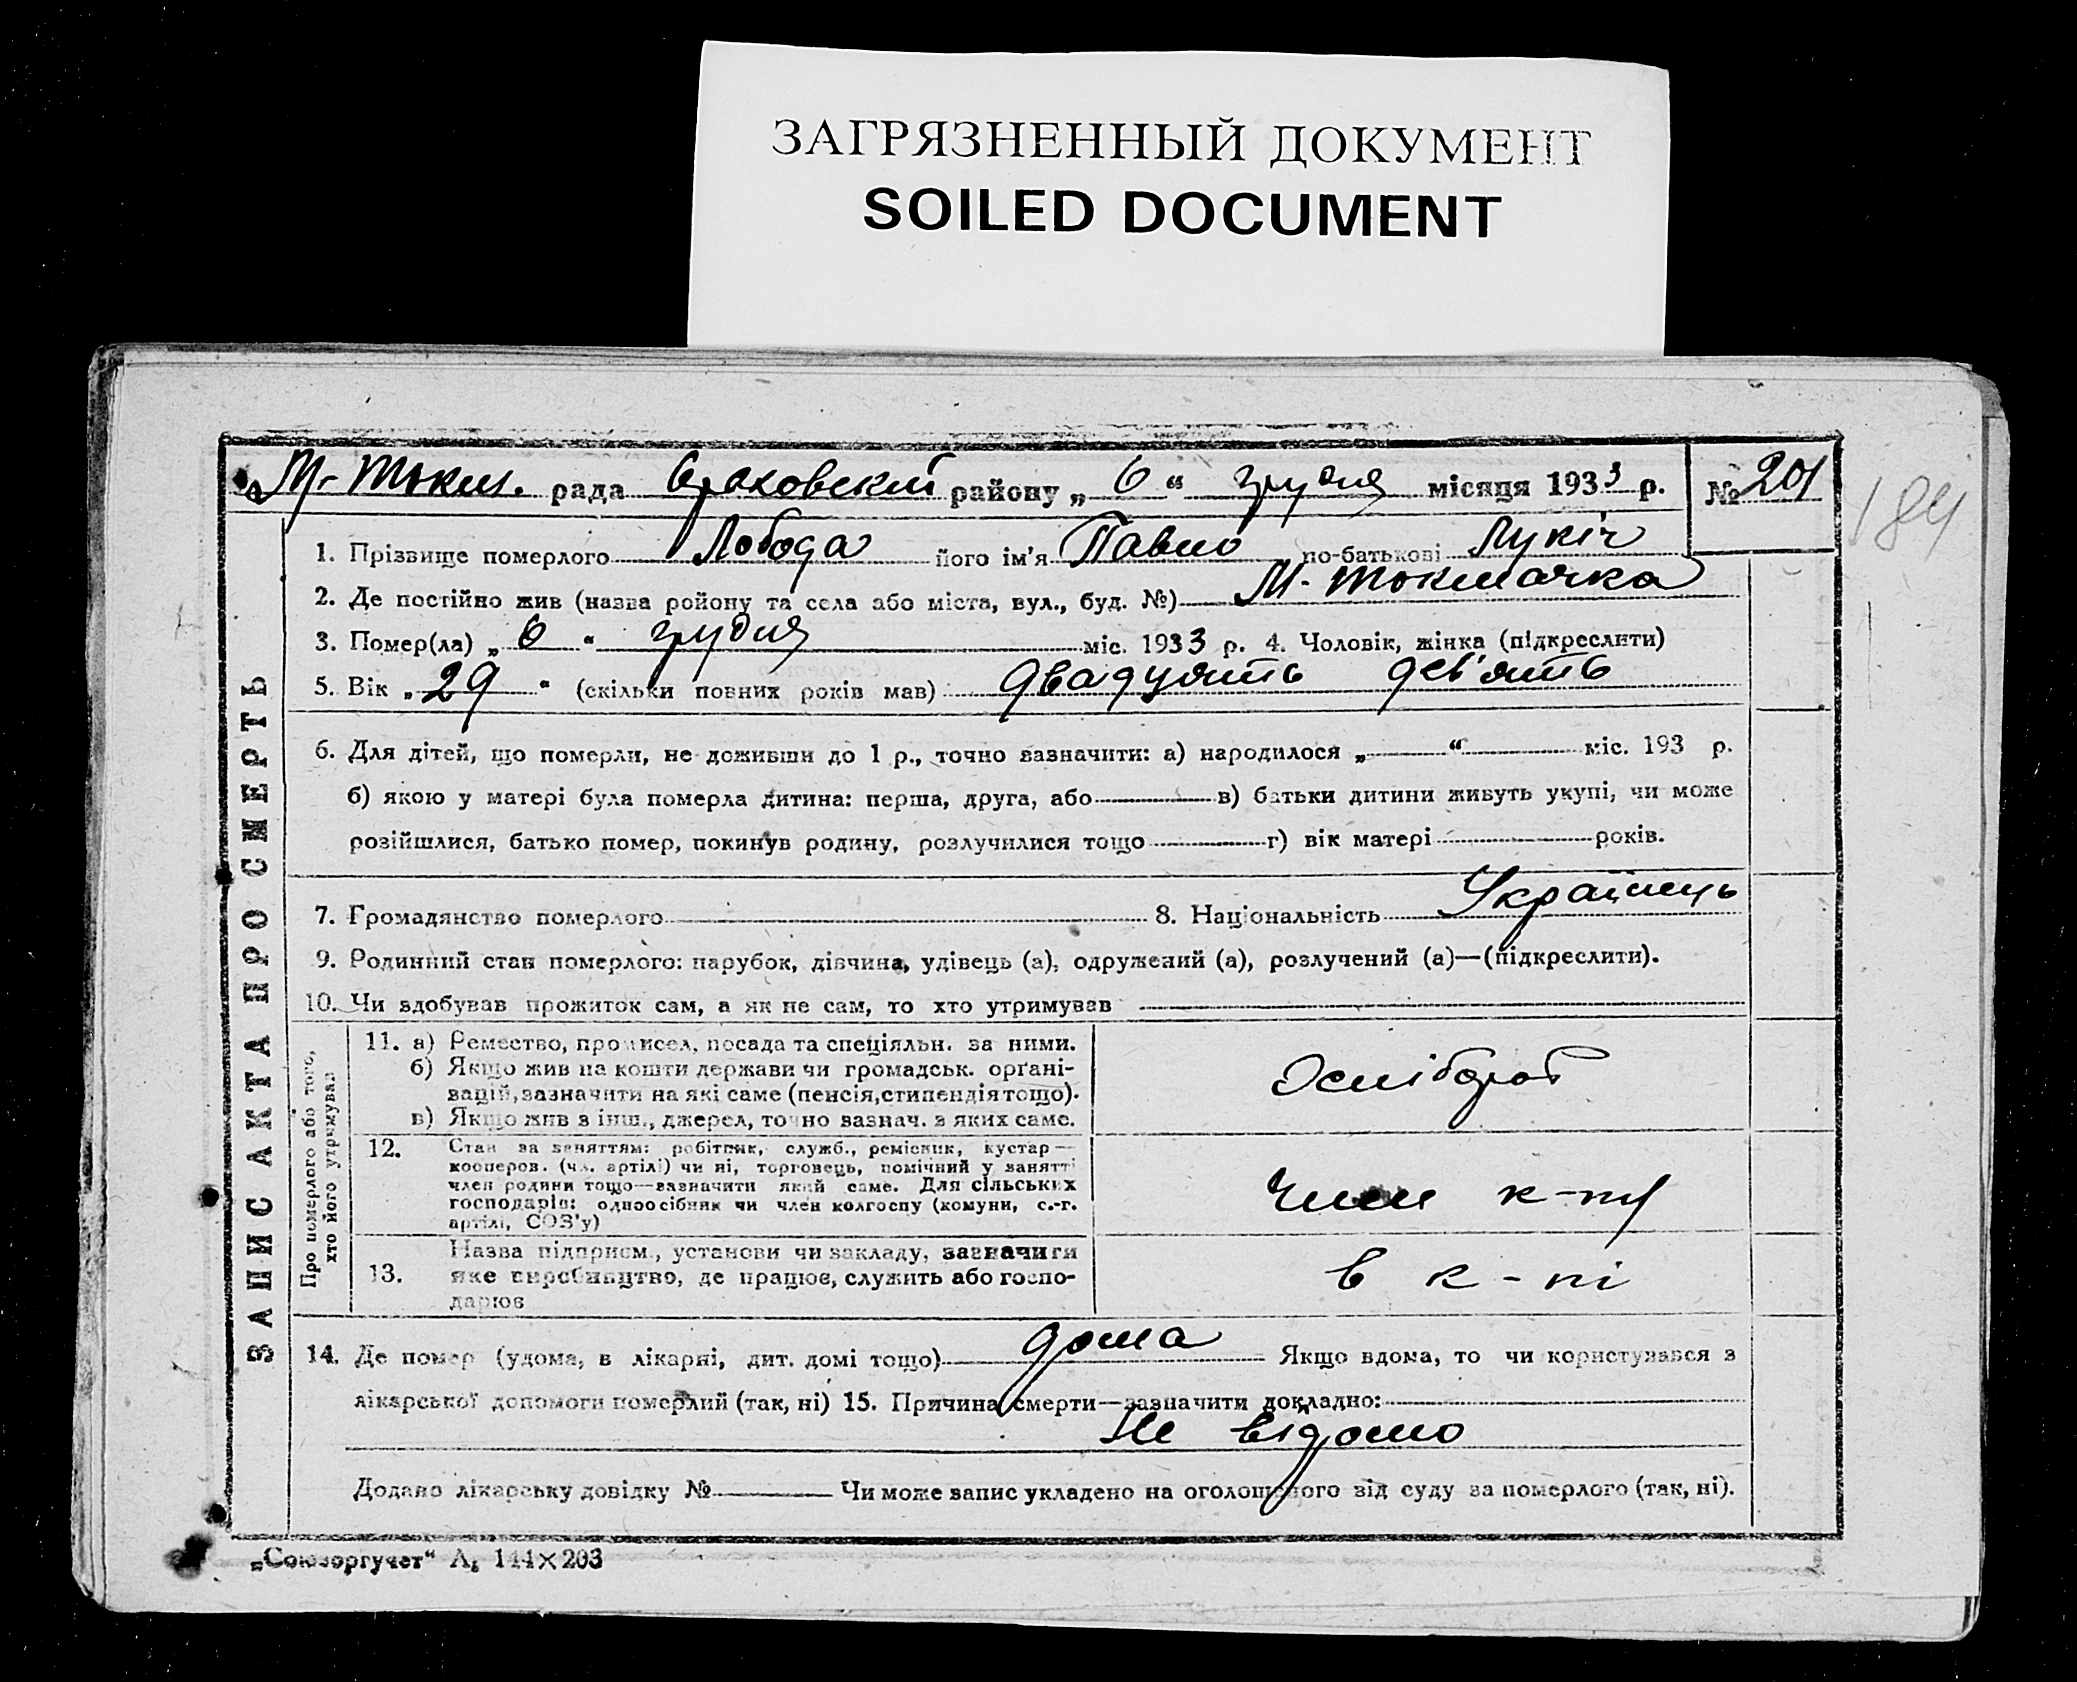 ЗАГРЯЗНЕННЫЙ ДОКУМЕНТ
SOILED DOCUMENT
М-Токм. рада Оріховский району „ 6 “ грудня місяця 1933 р. № 201
184
1. Прізвище померлого Лобода його ім'я Павло по-батькові Лукіч
2. Де постійно жив (назва ройону та села або міста, вул., буд. №) М-Токмачка
3. Помер(ла) „ 6 “ грудня міс. 1933 р. 4. Чоловік, жінка (підкреслити)
5. Вік „ 29 “ (скільки повних років мав) двадцять дев'ять
6. Для дітей, що померли, не доживши до 1 р., точно зазначити: а) народилося „ “ міс. 193 р.
б) якою у матері була померла дитина: перша, друга, або в) батьки дитини живуть укупі, чи може
розійшлися, батько помер, покинув родину, розлучилися тощо г) вік матері років.
7. Громадянство померлого 8. Національність Українець
9. Родинний стан померлого: парубок, дівчина, удівець (а), одружений (а), розлучений (а)—(підкреслити).
10. Чи здобував прожиток сам, а як не сам, то хто утримував
ЗАПИС АКТА ПРО СМЕРТЬ
Про померлого або того,
хто його утримував
11. а) Ремество, промисел, посада та спеціяльн. за ними.
б) Якщо жив на кошти держави чи громадськ. орґані-
зацій, зазначити на які саме (пенсія, стипендія тощо).
в) Якщо жив з інш., джерел, точно зазнач. з яких саме.
12. Стан за заняттям: робітник, служб., ремісник, кустар—
кооперов. (чл. артілі) чи ні, торговець, помічний у занятті
член родини тощо—зазначити який саме. Для сільських
господарів: одноосібник чи член колгоспу (комуни, с.-г.
артілі, СОЗ'у)
Член к-пу
13. Назва підприєм., установи чи закладу, зазначити
яке виробництво, де працює, служить або госпо-
дарює
в к-пі
14. Де помер (удома, в лікарні, дит. домі тощо) дома Якщо вдома, то чи користувався з
лікарської допомоги померлий (так, ні) 15. Причина смерти—зазначити докладно:
Не відомо
Додано лікарську довідку № Чи може запис укладено на оголошеного від суду за померлого (так, ні).
„Союзоргучет“ А, 144×203